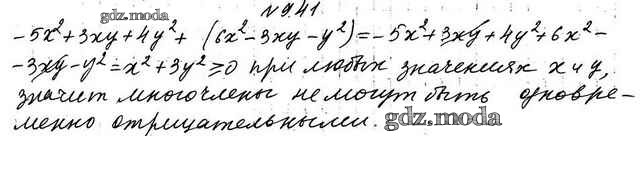 № 9.41
gdz.moda
-5x²+3xy+4y²+ (6x²-3xy-y²)=-5x²+3xy+4y²+6x²-
-3xy-y²=x²+3y²≥0 при любых значениях x и y,
значит многочлены не могут быть одновре-
менно отрицательными.
gdz.moda